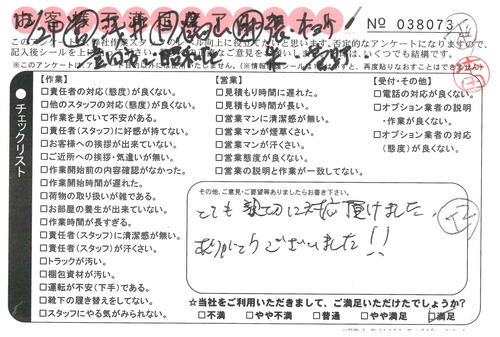 客
№ 038073
このアンケートは
記入後シールを
、いつでも結構です。
チェックリスト
【作業】
□責任者の対応(態度)が良くない。
□他のスタッフの対応(態度)が良くない。
□作業を見ていて不安がある。
□責任者(スタッフ)に好感が持てない。
□お客様への挨拶が出来ていない。
□ご近所への挨拶・気遣いが無い。
□作業開始前の内容確認がなかった。
□作業開始時間が遅れた。
□荷物の取り扱いが雑である。
□お部屋の養生が出来ていない。
□作業時間が長すぎる。
□責任者(スタッフ)に清潔感が無い。
□責任者(スタッフ)が汗くさい。
□トラックが汚い。
□梱包資材が汚い。
□運転が不安(下手)である。
□靴下の履き替えをしてない。
□スタッフにやる気がみられない。
【営業】
□見積もり時間に遅れた。
□見積もり時間が長い。
□営業マンに清潔感が無い。
□営業マンが煙草くさい。
□営業マンが汗くさい。
□営業態度が良くない。
□営業の説明と作業が一致してない。
【受付・その他】
□電話の対応が良くない。
□オプション業者の説明
・作業が良くない。
□オプション業者の対応
(態度)が良くない。
その他、ご意見・ご要望等ありましたらお書き下さい。
とても親切に対応頂けました。
ありがとうございました!!
☆当社をご利用いただきまして、ご満足いただけたでしょうか?
□不満 □やや不満 □普通 □やや満足 □満足